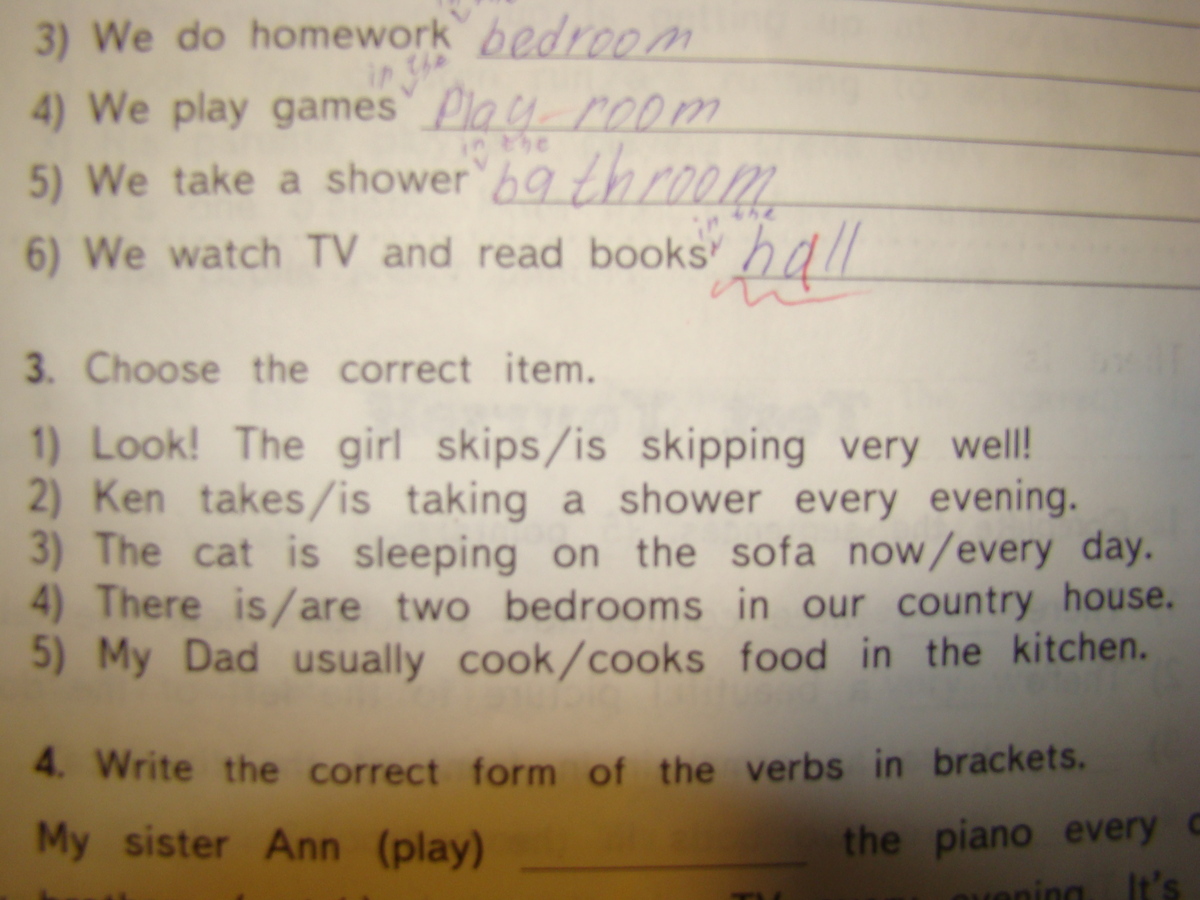 in the
3) We do homework bedroom
in the
4) We play games Play-room
in the
5) We take a shower bathroom
in the
6) We watch TV and read books hall
3. Choose the correct item.
1) Look! The girl skips/is skipping very well!
2) Ken takes/is taking a shower every evening.
3) The cat is sleeping on the sofa now/every day.
4) There is/are two bedrooms in our country house.
5) My Dad usually cook/cooks food in the kitchen.
4. Write the correct form of the verbs in brackets.
My sister Ann (play) the piano every
TV every evening. It's